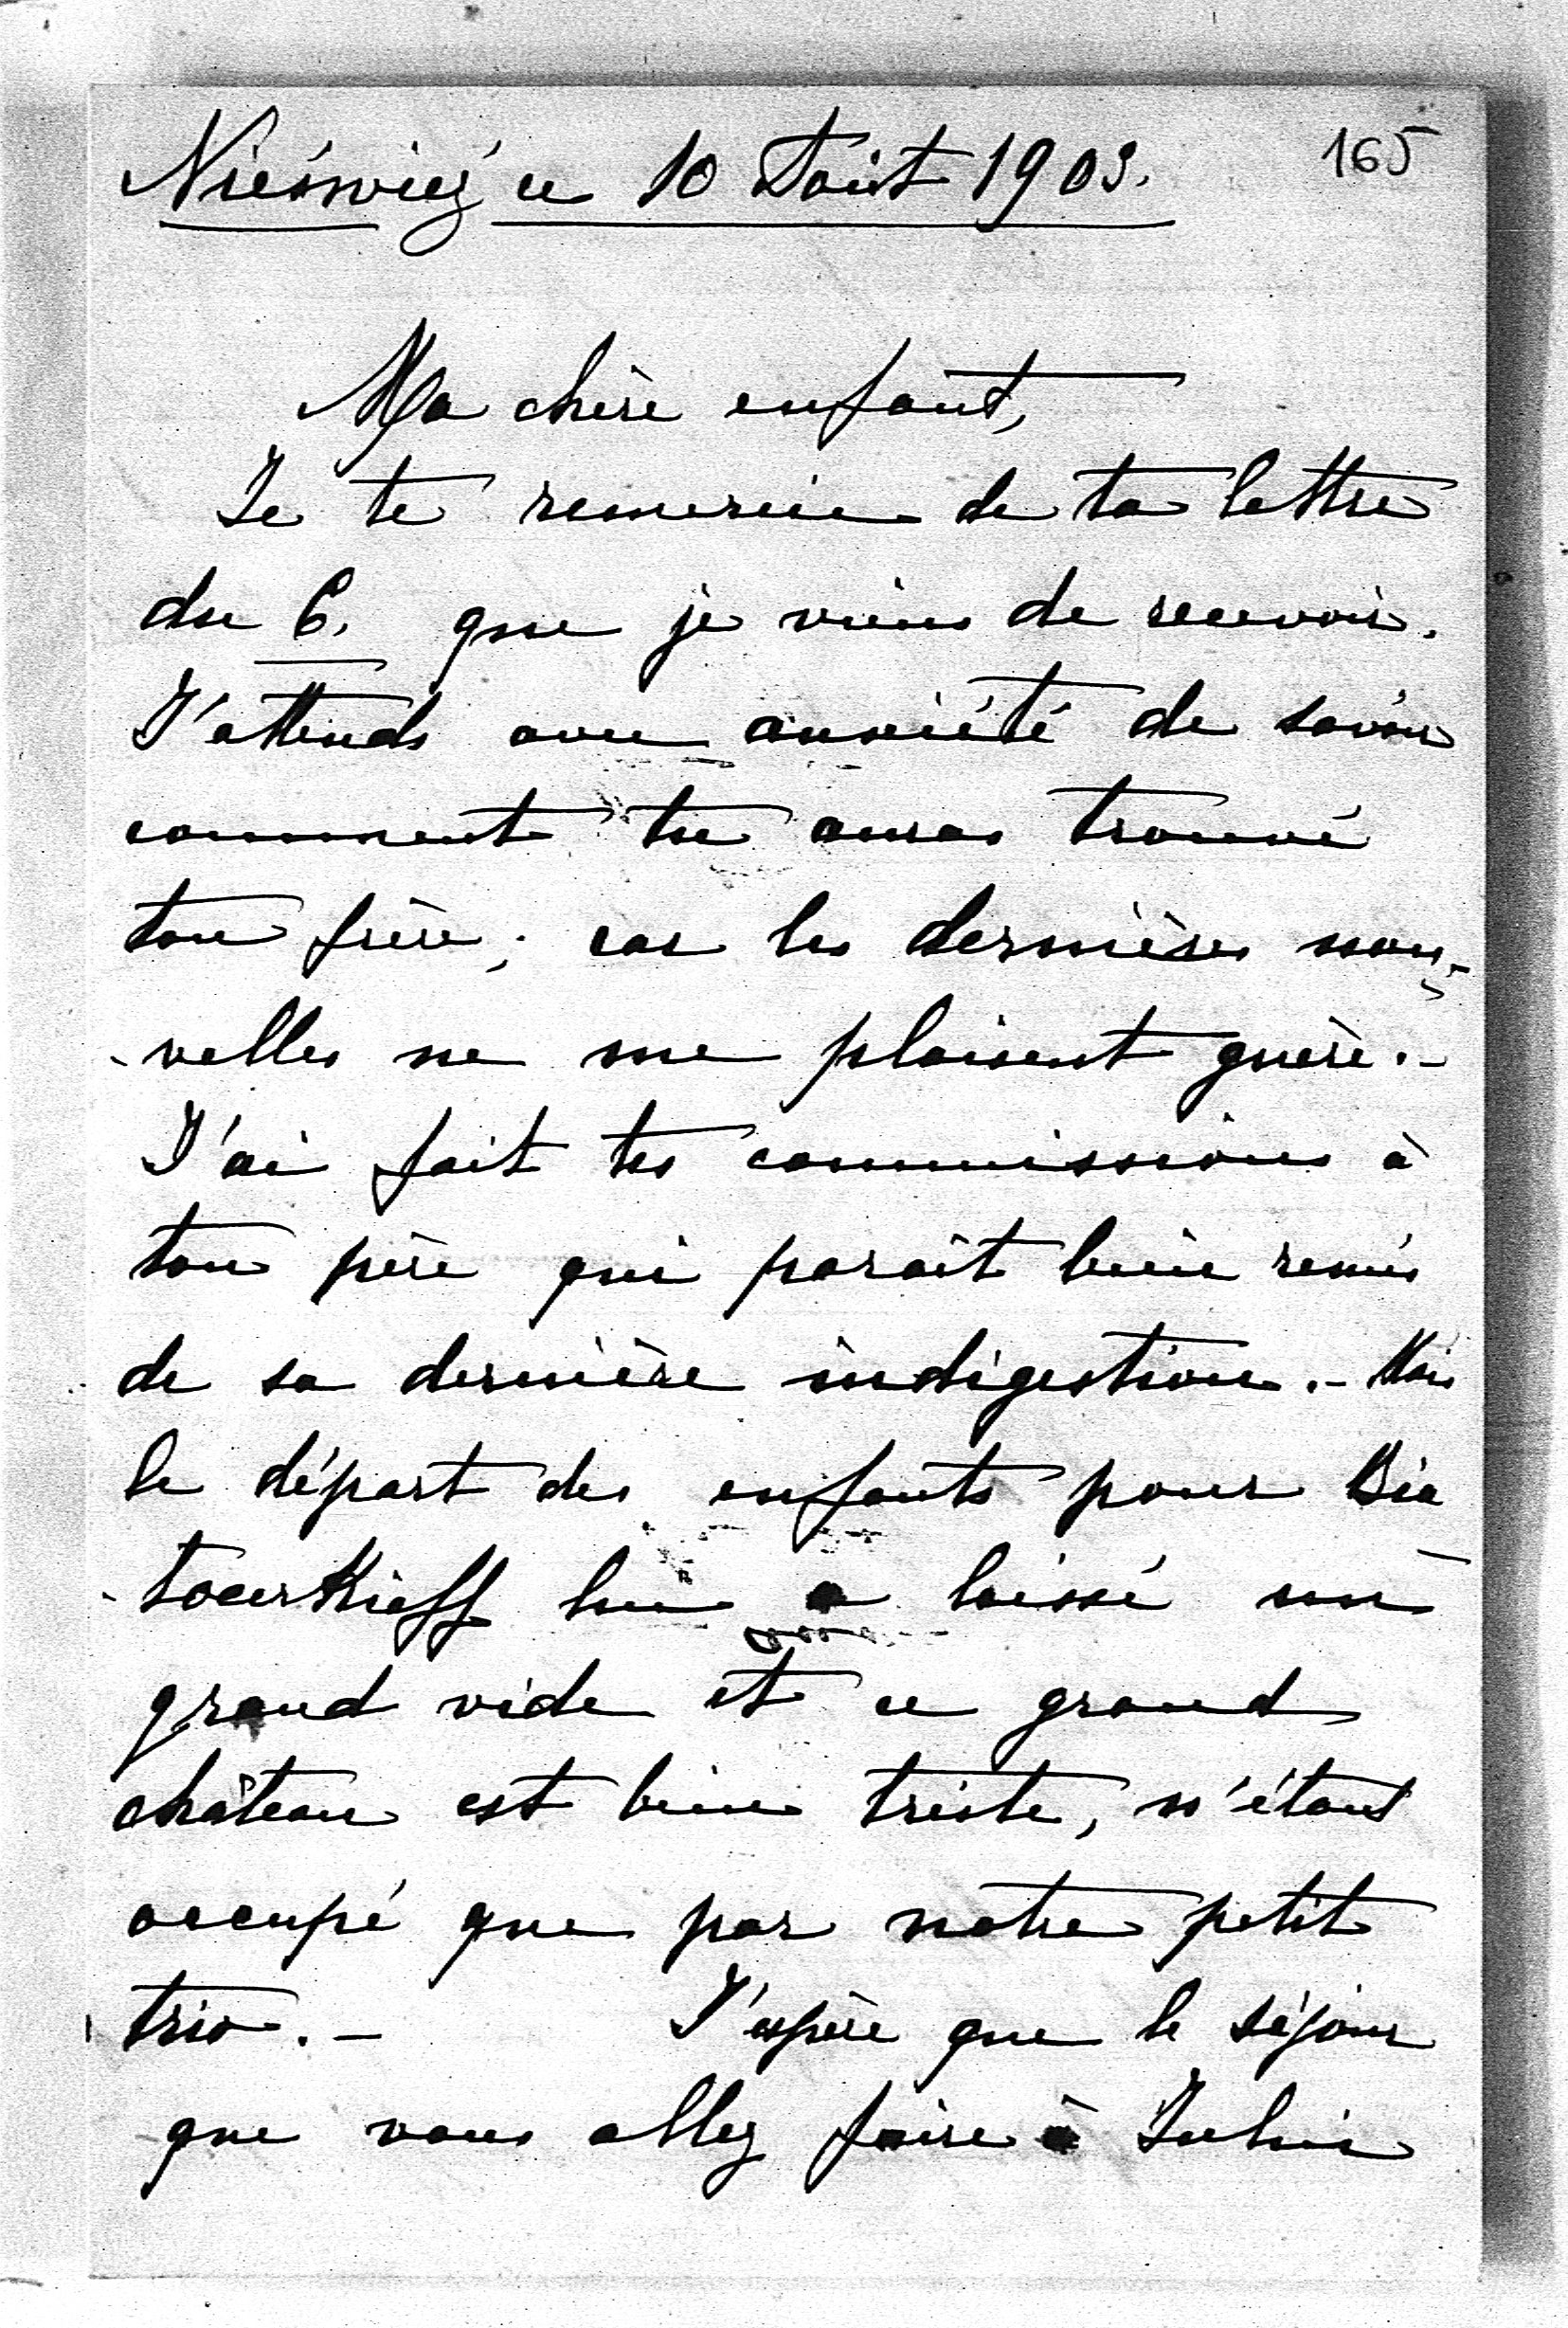 Nieśwież ce 10 Août 1903. 165
Ma chère enfant,
Je te remercie de ta lettre
du 6. que je viens de recevoir.
J'attends avec anxiété de savoir
comment tu auras trouvé
ton frère; car les dernières nou-
-velles ne me plaisent guère.-
J'ai fait tes commissions à
ton père qui paraît bien remis
de sa dernière indigestion.- Mais
le départ des enfants pour Bia
-tocerkieff lui a laissé un
grand vide et ce grand
château est bien triste, n'étant
occupé que par notre petit
trio.- J'espère que le séjour
que vous allez faire à